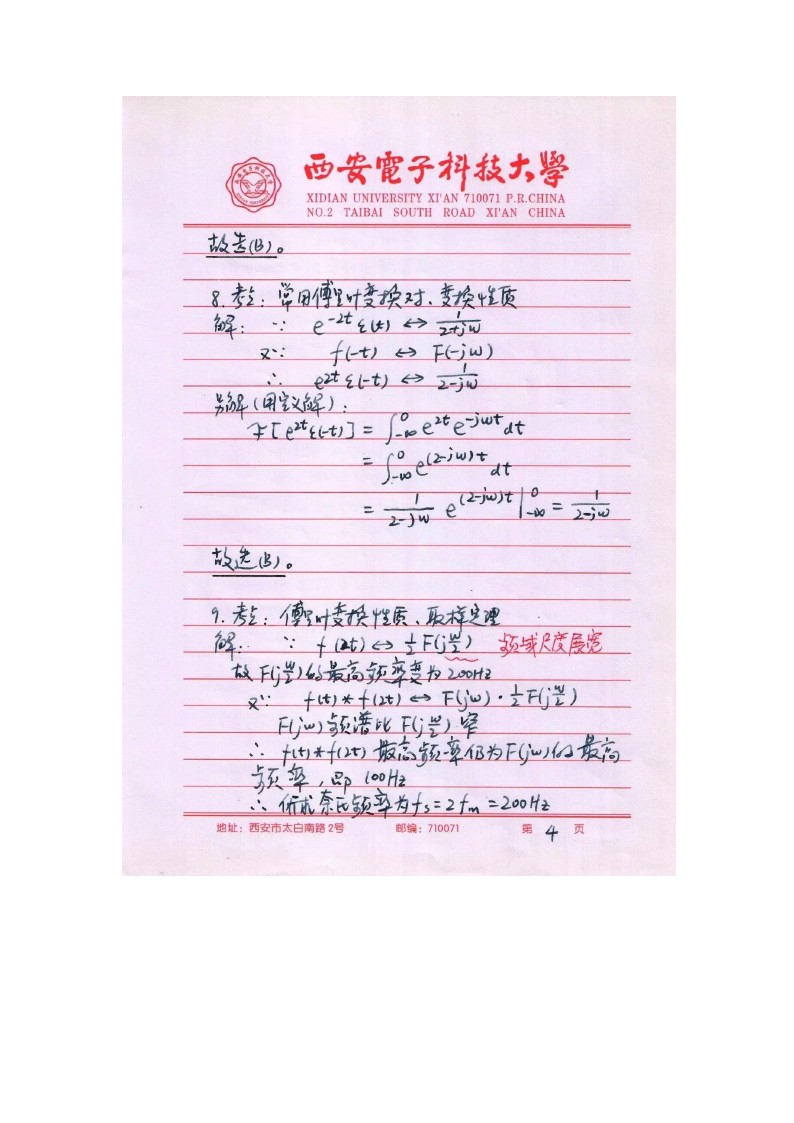 西安電子科技大學
XIDIAN UNIVERSITY XI'AN 710071 P.R.CHINA
NO.2 TAIBAI SOUTH ROAD XI'AN CHINA
故选(B)。
8. 考点：常用傅里叶变换对、变换性质
解：∵ e^{-2t} ε(t) ↔ 1/(2+jω)
又∵ f(-t) ↔ F(-jω)
∴ e^{2t} ε(-t) ↔ 1/(2-jω)
另解（用定义解）：
F[e^{2t}ε(-t)] = ∫_{-∞}^{0} e^{2t} e^{-jωt} dt
= ∫_{-∞}^{0} e^{(2-jω)t} dt
= 1/(2-jω) e^{(2-jω)t} |_{-∞}^{0} = 1/(2-jω)
故选(B)。
9. 考点：傅里叶变换性质、取样定理
解：∵ f(2t) ↔ 1/2 F(j ω/2) 频域尺度展宽
故 F(j ω/2) 的最高频率变为 200Hz
又∵ f(t) * f(2t) ↔ F(jω) · 1/2 F(j ω/2)
F(jω) 频谱比 F(j ω/2) 窄
∴ f(t) * f(2t) 最高频率仍为 F(jω) 的最高
频率，即 100Hz
∴ 所求奈氏频率为 fs = 2fm = 200Hz
地址：西安市太白南路2号 邮编：710071 第 4 页